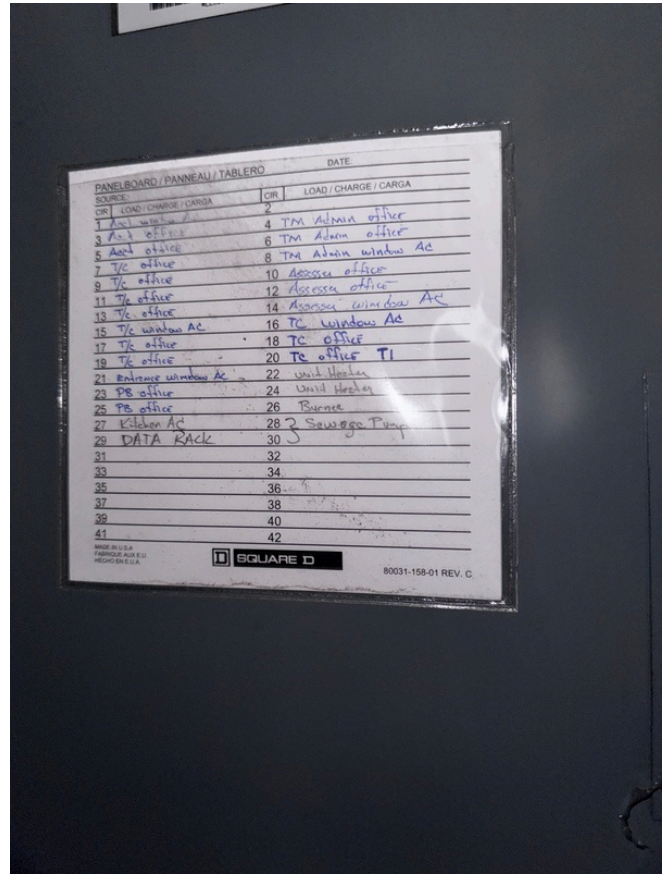 PANELBOARD / PANNEAU / TABLERO DATE:
SOURCE:
CIR LOAD / CHARGE / CARGA CIR LOAD / CHARGE / CARGA
1 window 2
3 office 4 TM Admin office
5 office 6 TM Admin office
7 T/c office 8 TM Admin window AC
9 T/c office 10 Assessor office
11 T/c office 12 Assessor office
13 T/c office 14 Assessor window AC
15 T/c window AC 16 TC window AC
17 T/c office 18 TC office
19 T/c office 20 TC office T1
21 Entrance window AC 22 Unit Heater
23 PB office 24 Unit Heater
25 PB office 26 Burner
27 Kitchen AC 28 } Sewage Pump
29 DATA RACK 30
31 32
33 34
35 36
37 38
39 40
41 42
MADE IN U.S.A
FABRIQUE AUX E.U.
HECHO EN E.U.A.
D SQUARE D
80031-158-01 REV. C